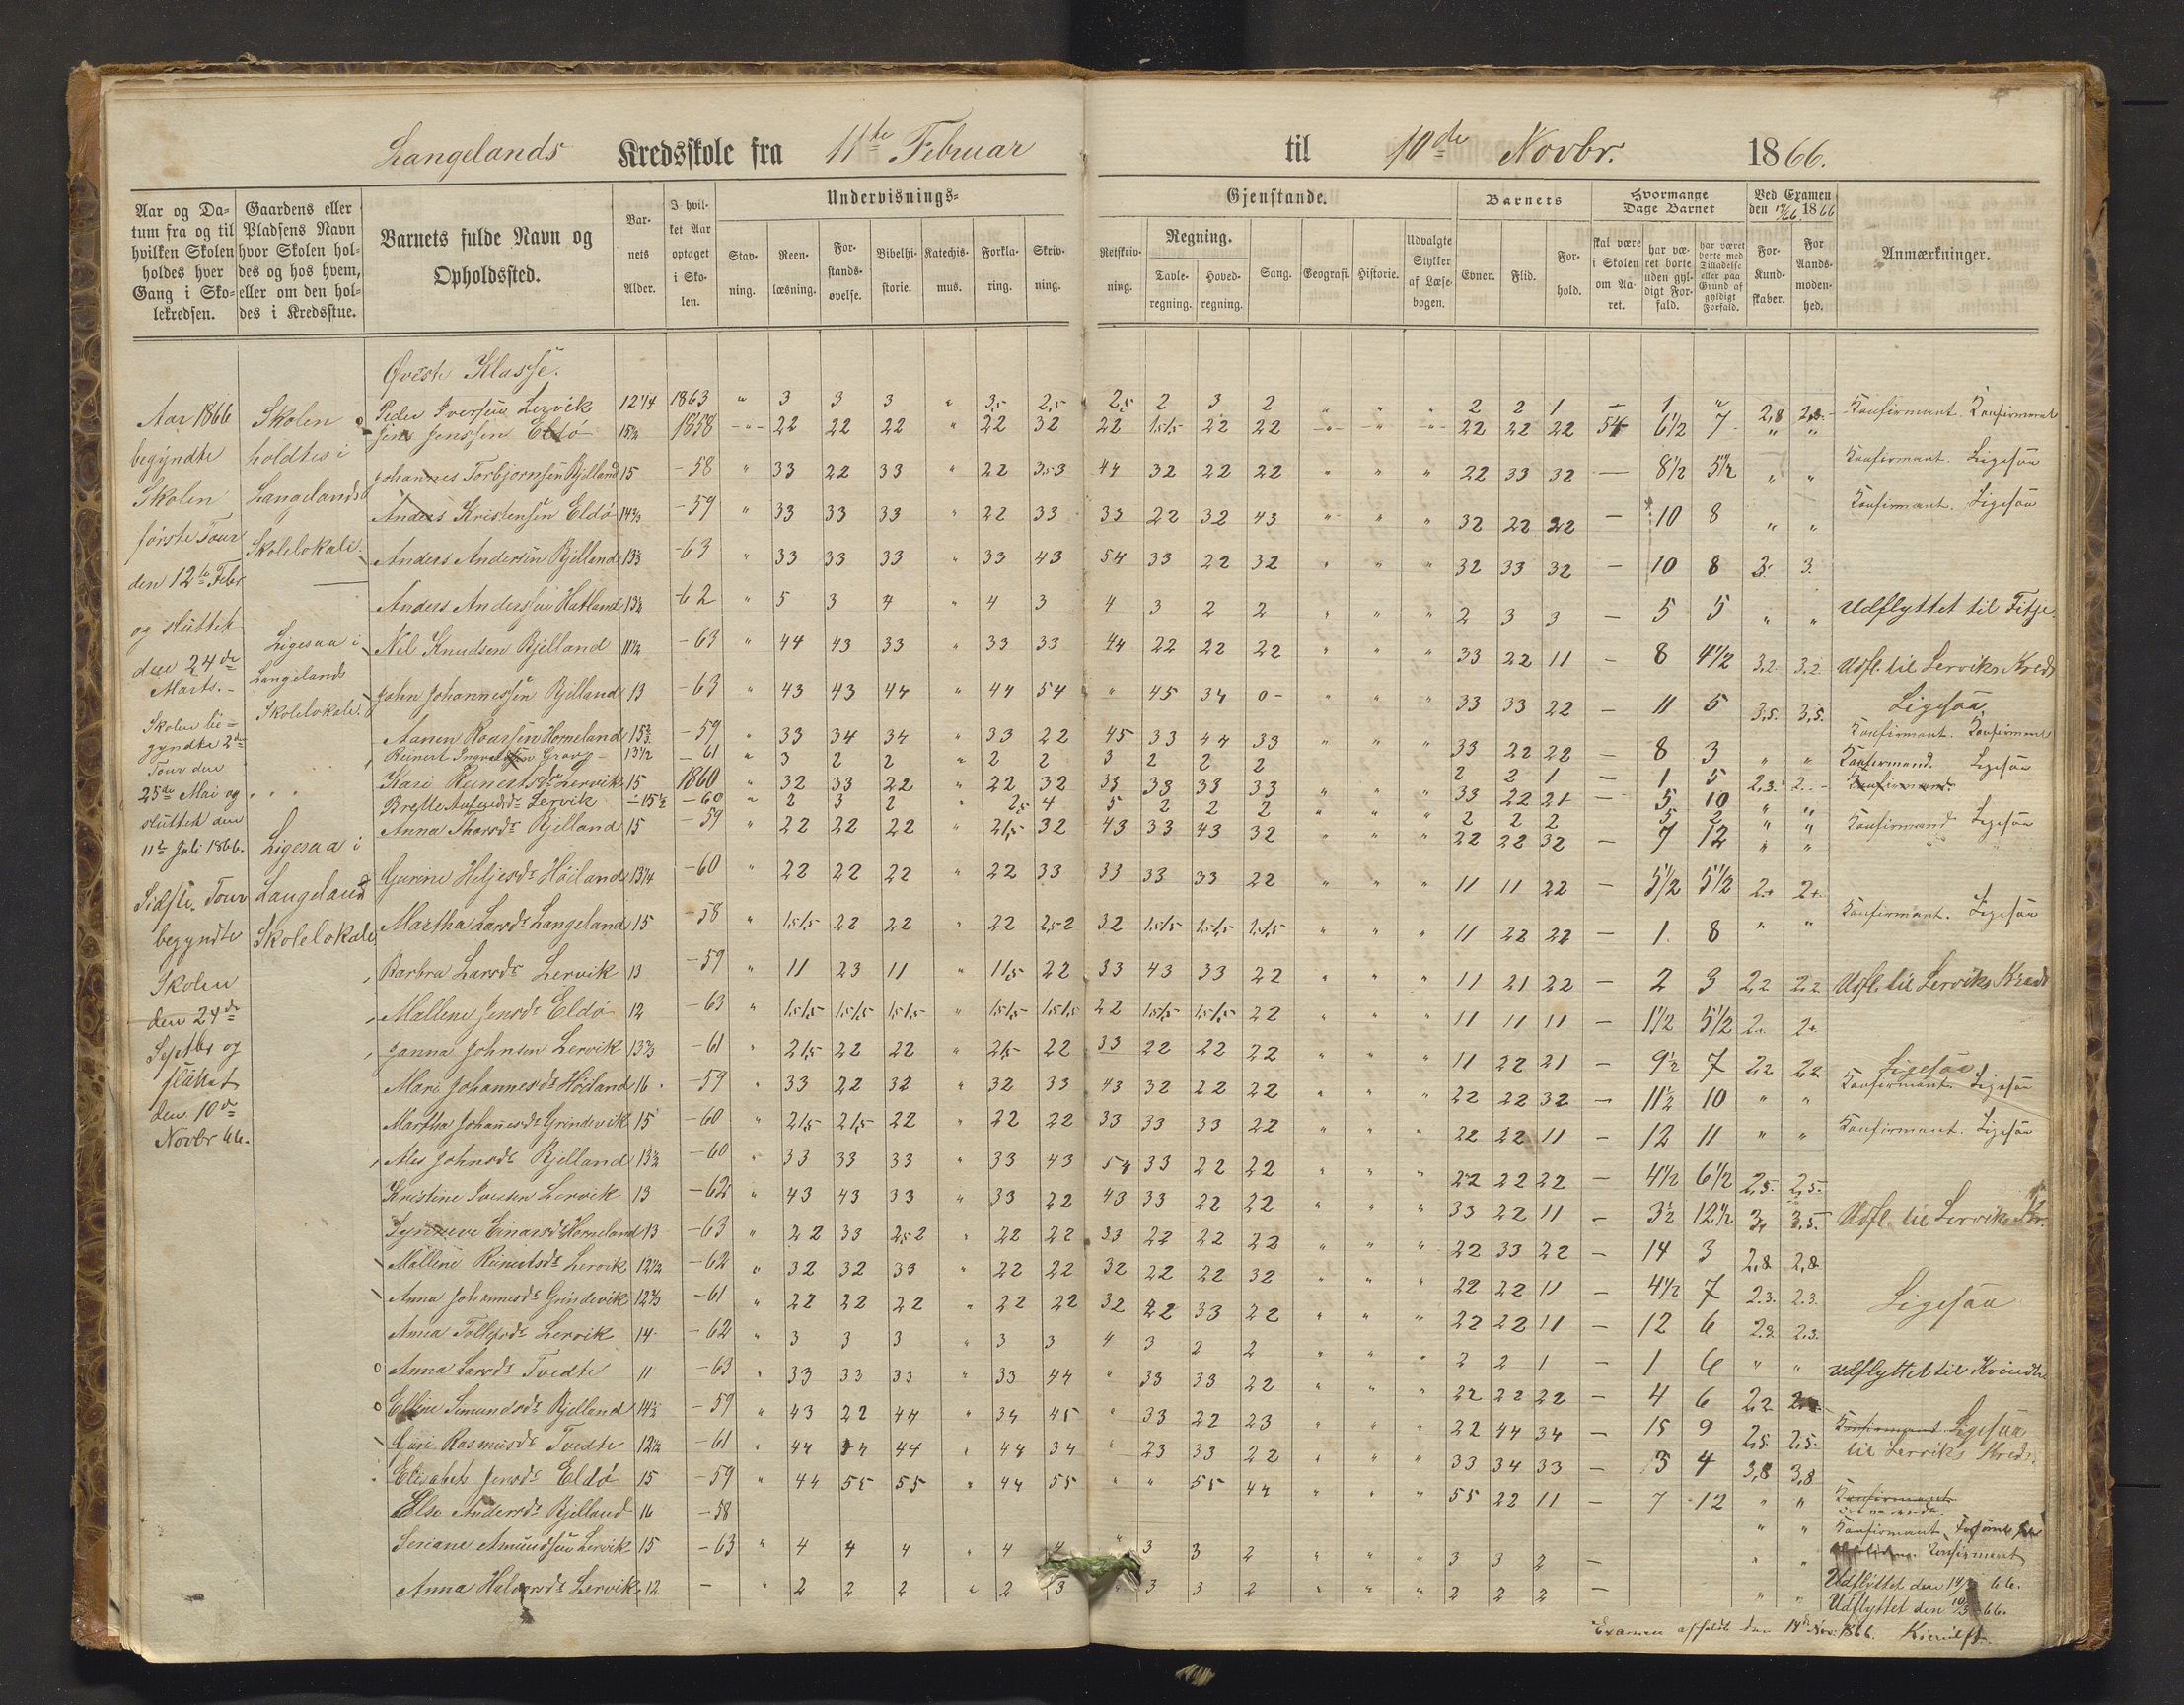 Langelands Kredsskole fra 11te Februar til 10de Novbr. 1866.
Aar og Da=
tum fra og til
hvilken Skolen
holdes hver
Gang i Sko=
lekredsen.
Gaardens eller
Pladsens Navn
hvor Skolen hol=
des og hos hvem,
eller om den hol=
des i Kredsstue.
Barnets fulde Navn og
Opholdssted.
Bar-
nets
Alder.
I hvil-
ket Aar
optaget
i Sko-
len.
Undervisnings=
Stav-
ning.
Reen-
læsning.
For-
stands-
øvelse.
Bibelhi-
storie.
Katechis-
mus.
Forkla-
ring.
Skriv-
ning.
Gjenstande.
Retskriv-
ning.
Regning.
Tavle-
regning.
Hoved-
regning.
Sang.
Geografi.
Historie.
Udvalgte
Stykker
af Læse-
bogen.
Barnets
Evner.
Flid.
For-
hold.
Hvormange
Dage Barnet
skal være
i Skolen
om Aa-
ret.
har væ-
ret borte
uden gyl-
digt For-
fald.
har været
borte med
Tilladelse
eller paa
Grund af
gyldigt
Forfald.
Ved Examen
den 14/11 66 1866
For
Kund-
skaber.
For
Aands-
moden-
hed.
Anmærkninger.
Aar 1866
begyndte
Skolen
første Tour
den 12te Febr
og sluttet
den 24de
Marts.-
Skolen be=
gyndte 2den
Tour den
25de Mai og
sluttet den
11te Juli 1866.
Sidste Tour
begyndte
Skolen
den 24de
Septbr og
sluttet
den 10de
Novbr 66.
Skolen
holdtes i
Langelands
Skolelokale.
Ligesaa i
Langelands
Skolelokale.
Ligesaa i
Langeland
Skolelokale
Øveste Klasse.
Peder Iversen Lervik 12 1/4 1863 " 3 3 3 " 3,5 2,5 2,5 2 3 2 " " " 2 2 1 - 1 " 2,8 2,8 Konfirmant. Konfirmeret
Jens Jenssen Eldø 15 1858 " 22 22 22 " 22 32 22 1,5/1,5 22 22 " " " 22 22 22 54 6 1/2 7 " "
Johannes Torbjørnsen Bjelland 15 -58 " 33 22 33 " 22 3,5 3 44 32 22 22 " " " 22 33 32 - 8 1/2 5 1/2 " " Konfirmant. Ligesaa
Anders Kristensen Eldø -59 " 33 33 33 " 22 33 33 22 32 43 " " " 32 22 22 - 10 8 " " Konfirmant. Ligesaa
Anders Andersen Bjelland -63 " 33 33 33 " 33 43 54 33 22 32 " " " 32 33 32 - 10 8 3. 3.
Anders Anderssen Hatland -62 " 5 3 4 " 4 3 4 3 2 2 " " " 2 3 3 - 5 5 " " Udflyttet til Fitje.
Nel Knudsen Bjelland 11 1/2 -63 " 44 43 33 " 33 33 44 22 22 22 " " " 33 22 11 - 8 4 1/2 3.2 3.2 Udfl. til Lerviks Kreds
John Johannessen Bjelland 13 -63 " 43 43 44 " 44 54 " 45 34 0- " " " 33 33 22 - 11 5 3,5. 3,5. Ligesaa
Aanen Roarsen Horneland -59 " 33 34 34 " 33 22 45 33 44 33 " " " 33 22 22 - 8 3 " " Konfirmant. Konfirmeret
Reinert 13 1/2 -61 " 3 2 2 " 2 2 3 2 2 2 2 2 1 - 1 5 2,3. 2.- Konfirmand. Ligesaa
Kari Reinertsdr Lervik 15 1860 " 32 33 22 " 22 32 33 33 33 33 " " " 33 22 21 - 5 10 " " Konfirmand
Brette Lervik 15 1/2 -60 " 2 3 2 " 2,5 4 5 2 2 2 " " " 2 2 2 5 2 " "
Anna Thorsdr Bjelland 15 -59 " 22 22 22 " 21,5 32 43 33 43 32 " " " 22 22 32 - 7 12 " " Konfirmand Ligesaa
Gurine Heljesdr Høiland 13 1/4 -60 " 22 22 22 " 22 33 33 33 33 22 " " " 11 11 22 - 5 1/2 5 1/2 2+ 2+
Martha Larsdr Langeland 15 -58 " 1,5/1,5 22 22 " 22 2,5 2 32 1,5/1,5 1,5/1,5 1,5/1,5 " " " 11 22 22 - 1. 8 " " Konfirmant. Ligesaa
Barbra Larsdr Lervik 13 -59 " 11 23 11 " 11,5 22 33 43 33 22 " " " 11 21 22 - 2 3 2,2 2,2 Udfl. til Lerviks Kreds
Mallene Jensdr Eldø 12 -63 " 1,5/1,5 1,5/1,5 1,5/1,5 " 1,5/1,5 1,5/1,5 22 1,5/1,5 1,5/1,5 22 " " " 11 11 11 - 1 1/2 5 1/2 2. 2+
Janna Johnsen Lervik -61 " 21,5 22 22 " 21,5 22 33 22 22 22 " " " 11 22 21 - 9 1/2 7 2,2 2,2 Ligesaa
Mari Johannesdr Høiland 16 -59 " 33 22 32 " 32 33 43 32 22 22 " " " 22 22 32 - 11 1/2 10 " " Konfirmant. Ligesaa
Martha Johanesdr Grindevik 15 -60 " 21,5 21,5 22 " 22 22 33 33 33 22 " " " 22 22 11 - 12 11 " " Konfirmant. Ligesaa
Ales Johnsdr Bjelland -60 " 33 33 33 " 33 43 54 33 22 22 " " " 22 22 22 - 4 1/2 6 1/2 2,5. 2,5.
Kristine Iversen Lervik 13 -62 " 43 43 33 " 33 22 43 33 22 22 " " " 33 22 11 - 3 1/2 12 1/2 3,5. Udfl. til Lerviks Kr.
Synneve Einarsdr Horneland 13 -63 " 22 33 2,5 2 " 22 22 33 22 22 22 " " " 22 33 22 - 14 3 2,8 2,8
Mallene Reinertsdr Lervik 12 1/2 -62 " 32 32 33 " 22 22 32 22 22 32 " " " 22 22 11 - 4 1/2 7 2.3. 2.3.
Anna Johannesdr Grindevik -61 " 22 22 22 " 22 22 32 22 33 22 " " " 22 22 11 - 12 6 2.3. 2.3. Ligesaa
Anna Tollefsdr Lervik 14 -62 " 3 3 3 " 3 3 4 3 2 2 " " " 2 2 1 - 1 6 " " Udflyttet til
Anna Larsdr Tvedte 11 -63 " 33 33 33 " 33 44 " 33 33 22 " " " 22 22 22 - 4 6 2,2
Elline Simundsdr Bjelland -59 " 43 22 44 " 34 45 " 33 22 23 " " " 22 44 34 - 15 9 2,5. 2,5. Konfirmand Ligesaa
Guri Rasmusdr Tvedte 12 1/2 -61 " 44 44 " 44 34 " 23 33 22 " " " 33 34 33 - 3 4 3,8 3,8 til Lerviks Kreds.
Elisabet Jensdr Eldø 15 -59 " 44 55 55 " 44 55 " " 55 44 " " " 55 22 11 - 7 12 " " Konfirmant
Else Andersdr Bjelland 16 -58 " " Konfirmant
Seriane Amundsen Lervik 15 -63 " 4 4 4 " 4 4 " 3 3 2 " " " 3 3 2 - " " Konfirmeret
Udflyttet den 66.
Anna Halvorsdr Lervik 12. - " 2 2 2 " 2 3 " 3 3 2 " " " 2 2 2 - " " Udflyttet den 66.
Examen afholdt den 14de Nov. 1866.